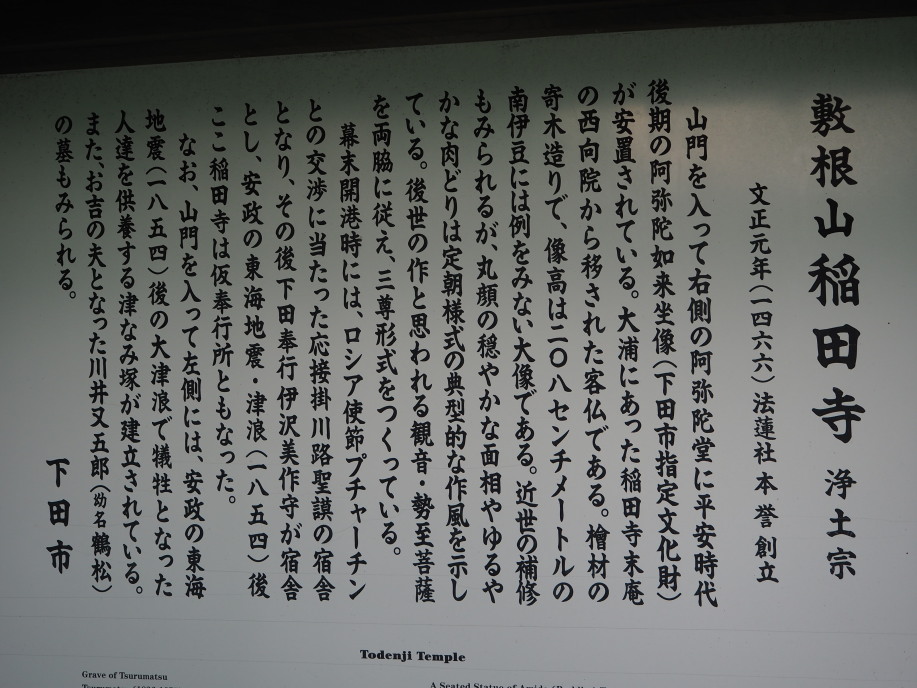 敷根山稲田寺 浄土宗
文正元年(一四六六)法蓮社 本誉 創立
山門を入って右側の阿弥陀堂に平安時代
後期の阿弥陀如来坐像(下田市指定文化財)
が安置されている。大浦にあった稲田寺末庵
の西向院から移された客仏である。檜材の
寄木造りで、像高は二〇八センチメートルの
南伊豆には例をみない大像である。近世の補修
もみられるが、丸顔の穏やかな面相やゆるや
かな肉どりは定朝様式の典型的な作風を示し
ている。後世の作と思われる観音・勢至菩薩
を両脇に従え、三尊形式をつくっている。
幕末開港時には、ロシア使節プチャーチン
との交渉に当たった応接掛川路聖謨の宿舎
となり、その後下田奉行伊沢美作守が宿舎
とし、安政の東海地震・津浪(一八五四)後
ここ稲田寺は仮奉行所ともなった。
なお、山門を入って左側には、安政の東海
地震(一八五四)後の大津浪で犠牲となった
人達を供養する津なみ塚が建立されている。
また、お吉の夫となった川井又五郎(幼名鶴松)
の墓もみられる。
下田市
Todenji Temple
Grave of Tsurumatsu
A Seated Statue of Amida